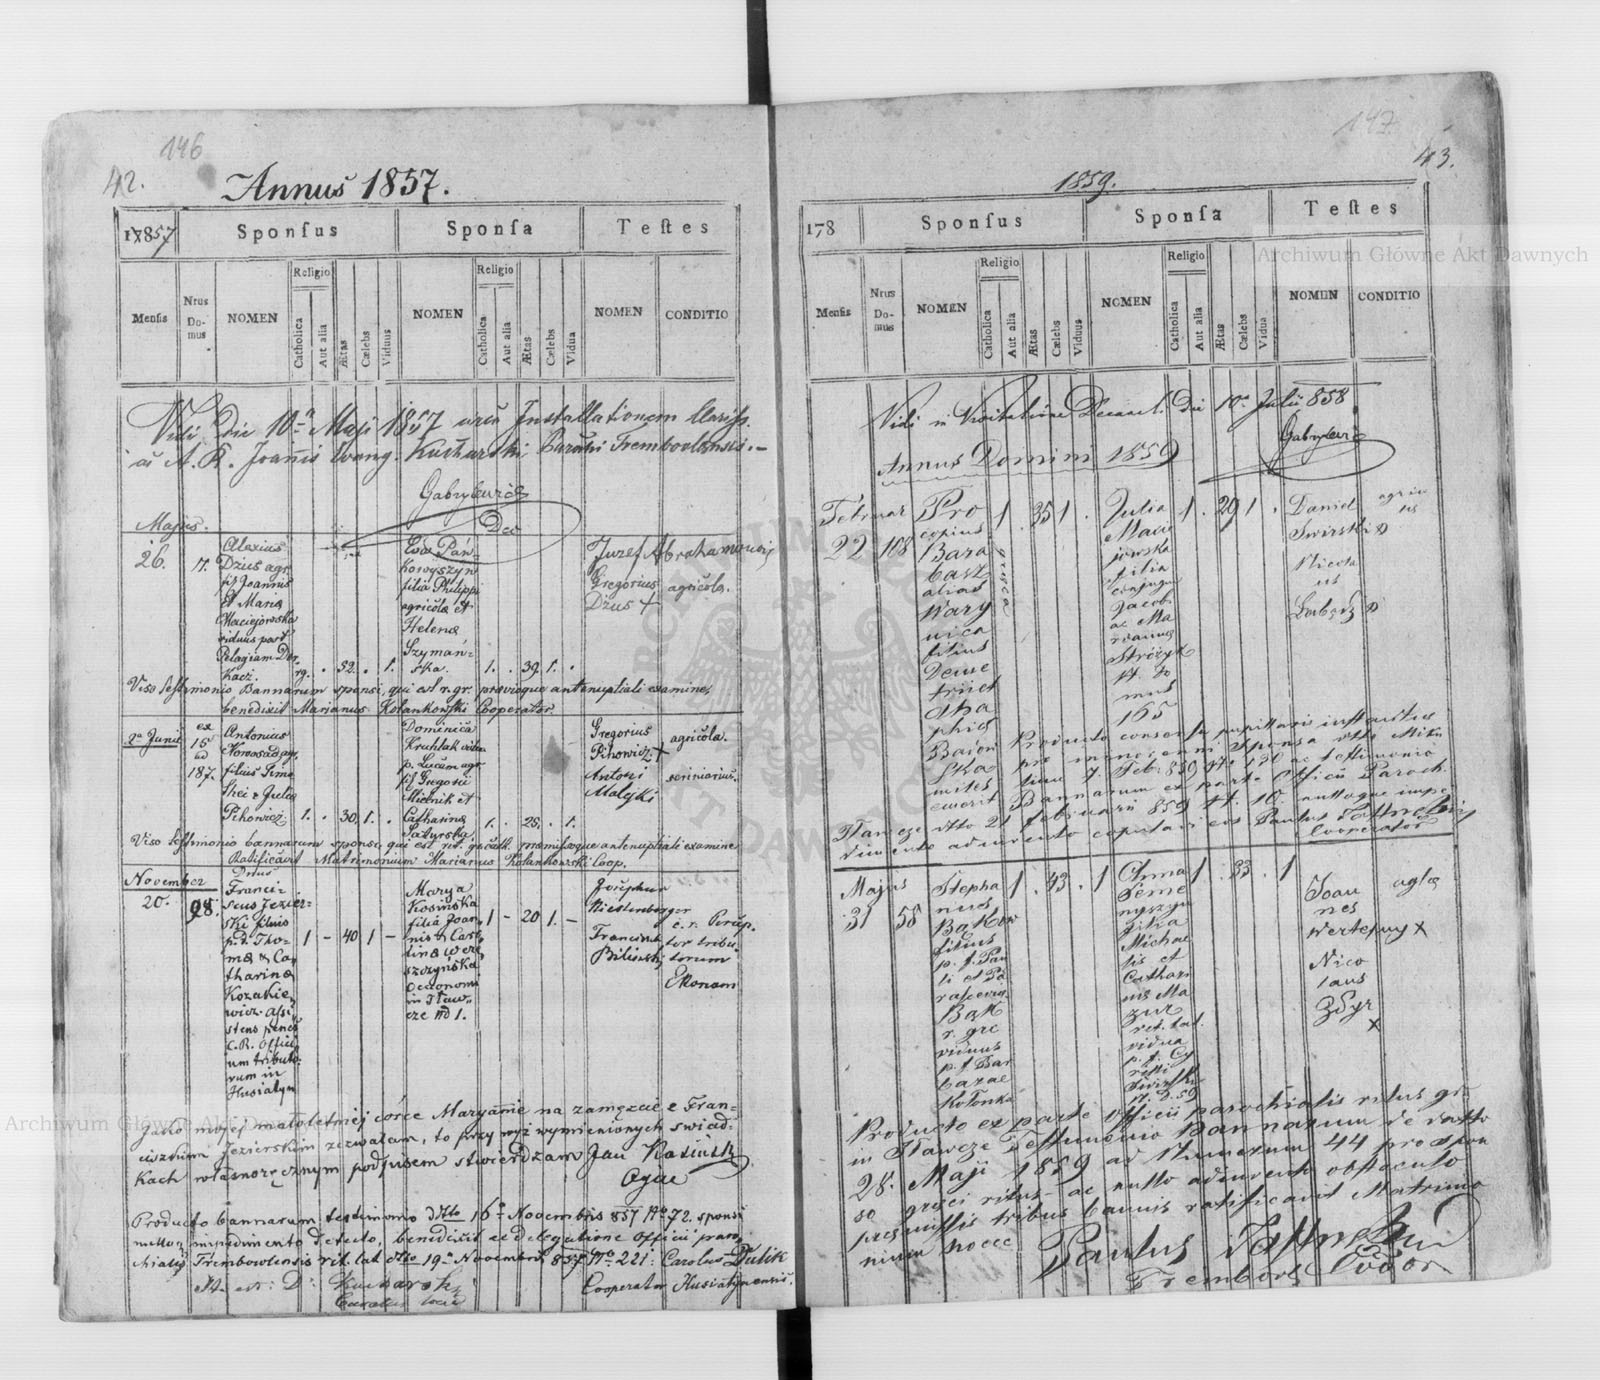 146
42.
Annus 1857.
17857
Sponsus
Sponsa
Testes
Mensis
Nrus Domus
NOMEN
Religio
Catholica
Aut alia
Ætas
Cælebs
Viduus
NOMEN
Religio
Catholica
Aut alia
Ætas
Cælebs
Vidua
NOMEN
CONDITIO
Vidi die 10a Maji 1857 Installationem
Joannis Evang. Kucharski, Parochi Trembovlensis.
Gabrylewicz
Dec
Majus.
26.
17.
Alexius
Dzius agr.
f. Joannis
et Maria
Maciejowska
viduus post
Pelagiam Der-
kacz.
rg. 52. 1.
Eva Pan-
kowyszyn
filia Philippi
agricolæ et
Helena
Szymań-
ska.
1. 39. 1.
Juzef Abrahamowicz
Gregorius agricola.
Dzus +
Viso testimonio Bannarum sponsi, qui est r. gr. prævioque antenuptiali examine,
benedixit Marianus Kolankowski Cooperator.
2a Junii
ex
15
ad
187.
Antonius
Korosad
filius Timo
thei & Julia
Pihowicz
1. 30. 1.
Dominica
Kruhlak vidua
p. Lucam agr.
f. Gregorii
Mielnik et
Catharina
Saturska.
1. 28. 1.
Gregorius agricola.
Pihowicz +
Antoni
Malyki
Viso testimonio bannarum sponsi, qui est rit. gr. cath. præmissoque antenuptiali examine
Ratificavit Matrimonium Marianus Kolankowski Coop.
November
20.
98.
Dnus
Franci-
scus Jezier-
ski filius
p. d. Tho-
mæ & Ca-
tharina
Kozakie-
wicz assi-
stens penes
C. R. Offici-
um tributo-
rum in
Husiatyn
1 - 40 1 -
Marya
Kosińska
filia Joan-
nis &
tinæ Were-
szczyńska
Oeconomi
in Iław-
cze No 1.
1 - 20 1. -
Josephus
Niestenberger
c. r. Percep.
tor tribu-
torum
Franciszek
Biliński
Ekonom
Jako mojej małoletniej córce Maryannie na zamęźcie z Fran-
ciszkiem Jezierskim zezwalam, to przy wyż wymienionych świad-
kach własnoręcznym podpisem stwierdzam Jan Kosiński
Ojciec
Producto bannarum testimonio ddtto 16a Novembris 857 No 72. sponsi
nulloq. impedimento detecto, benedixit ex delegatione Officii paro-
chialis Trembowlensis rit. lat. ddto 19a Novembris 857 No 221: Carolus Dulik
Ita est: D: Kucharski
Cooperator Husiatynensis.
Curatus loci
147
43.
1859.
178
Sponsus
Sponsa
Testes
Mensis
Nrus Domus
NOMEN
Religio
Catholica
Aut alia
Ætas
Cælebs
Viduus
NOMEN
Religio
Catholica
Aut alia
Ætas
Cælebs
Vidua
NOMEN
CONDITIO
Vidi in Visitatione Decanali die 10a Julii 858
Gabrylewicz
Annus Domini 1859
Februar
22
108
Pro
copius
Bara
basz
alias
Wary
nica
filius
Deme
trii et
Aha
phiæ
Baion
ska
miles
emerit
1 . 35 1 .
Julia
Macie
jowska
filia
conjugu
Jacob.
ac Ma
rianna
Strózyk
st. do
mus
165
1 . 29 1 .
Daniel agrico
Swirski
Nicola
us
Producto consensu pupillaris instantiæ
pro minorenni Sponsa dtto
7. Feb. 859 No 130 ac testimonio
Bannarum ex parte Officii Paroch.
Iławcze dtto 21 februarii 859 No. 10. nulloque impe
dimento adinvento copulavi eos Paulus
Cooperator
Majus
31
58
Stepha
nus
Bakow
filius
p. f. Pau
li et Pa
rascevia
Bak
r. grc
viduus
p. f. Bar
barae
Kotonka
1 . 43 . 1
Anna
Seme
nyszyn
filia
Michae
lis et
Cathari
næ Ma
zur
rit. lat.
vidua
p. f. Cy
rilli
Swirski
N. D. 59
1 . 33 . 1
Joan aglæ
nes
Wertepny x
Nico
laus
Zdyr
x
Producto ex parte Officii parochialis ritus gr.
in Iławcze Testimonio Bannarum de datto
28. Maji 1859 ad Numerum 44 pro Spon
so græci ritus ac nullo adinvento obstaculo
præmissis tribus bannis ratificavit Matrimo
nium hocce Paulus
Trembovl Coop.
Archiwum Główne Akt Dawnych
Archiwum Główne Akt Dawnych